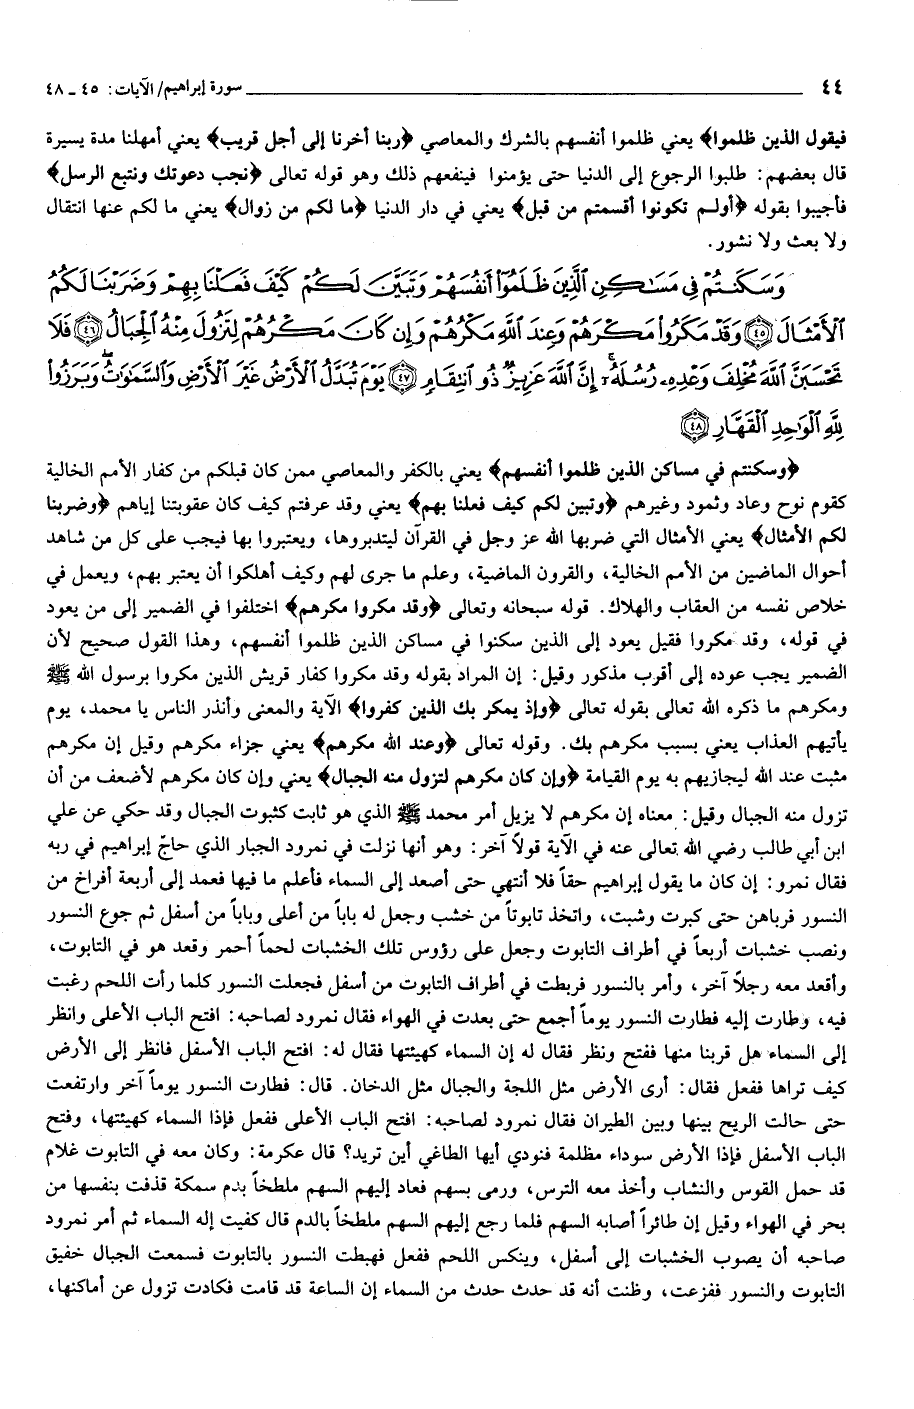 ٤٤ سورة إبراهيم/ الآيات: ٤٥ ـ ٤٨
فيقول الذين ظلموا﴾ يعني ظلموا أنفسهم بالشرك والمعاصي ﴿ربنا أخرنا إلى أجل قريب﴾ يعني أمهلنا مدة يسيرة
قال بعضهم: طلبوا الرجوع إلى الدنيا حتى يؤمنوا فينفعهم ذلك وهو قوله تعالى ﴿نجب دعوتك ونتبع الرسل﴾
فأجيبوا بقوله ﴿أولم تكونوا أقسمتم من قبل﴾ يعني في دار الدنيا ﴿ما لكم من زوال﴾ يعني ما لكم عنها انتقال
ولا بعث ولا نشور.
وَسَكَنتُمْ فِي مَسَٰكِنِ ٱلَّذِينَ ظَلَمُوٓا۟ أَنفُسَهُمْ وَتَبَيَّنَ لَكُمْ كَيْفَ فَعَلْنَا بِهِمْ وَضَرَبْنَا لَكُمُ
ٱلْأَمْثَالَ ﴿٤٥﴾ وَقَدْ مَكَرُوا۟ مَكْرَهُمْ وَعِندَ ٱللَّهِ مَكْرُهُمْ وَإِن كَانَ مَكْرُهُمْ لِتَزُولَ مِنْهُ ٱلْجِبَالُ ﴿٤٦﴾ فَلَا
تَحْسَبَنَّ ٱللَّهَ مُخْلِفَ وَعْدِهِۦ رُسُلَهُۥٓ ۗ إِنَّ ٱللَّهَ عَزِيزٌ ذُو ٱنتِقَامٍ ﴿٤٧﴾ يَوْمَ تُبَدَّلُ ٱلْأَرْضُ غَيْرَ ٱلْأَرْضِ وَٱلسَّمَٰوَٰتُ ۖ وَبَرَزُوا۟
لِلَّهِ ٱلْوَٰحِدِ ٱلْقَهَّارِ ﴿٤٨﴾
﴿وسكنتم في مساكن الذين ظلموا أنفسهم﴾ يعني بالكفر والمعاصي ممن كان قبلكم من كفار الأمم الخالية
كقوم نوح وعاد وثمود وغيرهم ﴿وتبين لكم كيف فعلنا بهم﴾ يعني وقد عرفتم كيف كان عقوبتنا إياهم ﴿وضربنا
لكم الأمثال﴾ يعني الأمثال التي ضربها الله عز وجل في القرآن ليتدبروها، ويعتبروا بها فيجب على كل من شاهد
أحوال الماضين من الأمم الخالية، والقرون الماضية، وعلم ما جرى لهم وكيف أهلكوا أن يعتبر بهم، ويعمل في
خلاص نفسه من العقاب والهلاك. قوله سبحانه وتعالى ﴿وقد مكروا مكرهم﴾ اختلفوا في الضمير إلى من يعود
في قوله، وقد مكروا فقيل يعود إلى الذين سكنوا في مساكن الذين ظلموا أنفسهم، وهذا القول صحيح لأن
الضمير يجب عوده إلى أقرب مذكور وقيل: إن المراد بقوله وقد مكروا كفار قريش الذين مكروا برسول الله ﷺ
ومكرهم ما ذكره الله تعالى بقوله تعالى ﴿وإذ يمكر بك الذين كفروا﴾ الآية والمعنى وأنذر الناس يا محمد، يوم
يأتيهم العذاب يعني بسبب مكرهم بك. وقوله تعالى ﴿وعند الله مكرهم﴾ يعني جزاء مكرهم وقيل إن مكرهم
مثبت عند الله ليجازيهم به يوم القيامة ﴿وإن كان مكرهم لتزول منه الجبال﴾ يعني وإن كان مكرهم لأضعف من أن
تزول منه الجبال وقيل: معناه إن مكرهم لا يزيل أمر محمد ﷺ الذي هو ثابت كثبوت الجبال وقد حكي عن علي
ابن أبي طالب رضي الله تعالى عنه في الآية قولاً آخر: وهو أنها نزلت في نمرود الجبار الذي حاجّ إبراهيم في ربه
فقال نمرو: إن كان ما يقول إبراهيم حقاً فلا أنتهي حتى أصعد إلى السماء فأعلم ما فيها فعمد إلى أربعة أفراخ من
النسور فرباهن حتى كبرت وشبت، واتخذ تابوتاً من خشب وجعل له باباً من أعلى وباباً من أسفل ثم جوع النسور
ونصب خشبات أربعاً في أطراف التابوت وجعل على رؤوس تلك الخشبات لحماً أحمر وقعد هو في التابوت،
وأقعد معه رجلاً آخر، وأمر بالنسور فربطت في أطراف التابوت من أسفل فجعلت النسور كلما رأت اللحم رغبت
فيه، وطارت إليه فطارت النسور يوماً أجمع حتى بعدت في الهواء فقال نمرود لصاحبه: افتح الباب الأعلى وانظر
إلى السماء هل قربنا منها ففتح ونظر فقال له إن السماء كهيئتها فقال له: افتح الباب الأسفل فانظر إلى الأرض
كيف تراها ففعل فقال: أرى الأرض مثل اللجة والجبال مثل الدخان. قال: فطارت النسور يوماً آخر وارتفعت
حتى حالت الريح بينها وبين الطيران فقال نمرود لصاحبه: افتح الباب الأعلى ففعل فإذا السماء كهيئتها، وفتح
الباب الأسفل فإذا الأرض سوداء مظلمة فنودي أيها الطاغي أين تريد؟ قال عكرمة: وكان معه في التابوت غلام
قد حمل القوس والنشاب وأخذ معه الترس، ورمى بسهم فعاد إليهم السهم ملطخاً بدم سمكة قذفت بنفسها من
بحر في الهواء وقيل إن طائراً أصابه السهم فلما رجع إليهم السهم ملطخاً بالدم قال كفيت إله السماء ثم أمر نمرود
صاحبه أن يصوب الخشبات إلى أسفل، وينكس اللحم ففعل فهبطت النسور بالتابوت فسمعت الجبال خفيق
التابوت والنسور ففزعت، وظنت أنه قد حدث حدث من السماء إن الساعة قد قامت فكادت تزول عن أماكنها،